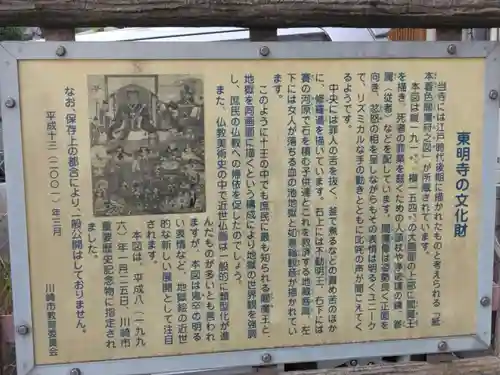 東明寺の文化財
当寺には江戸時代後期に描かれたものと考えられる「紙
本着色閻魔府之図」が所蔵されています。
本図は縦一九一・
横一五四・
の大画面の上部に閻魔王
を描き、死者の罪業を裁くための人頭杖や浄玻璃の鏡、
属（従者）などを配しています。閻魔像は姿勢良く正面を
向き、忿怒の相を呈しながらもその表情は明るくユニーク
で、リズミカルな手の動きとともに叱咤の声が聞こえてく
るようです。
中央には罪人の舌を抜く、釜で煮るなどの責め苦のほか
に、修羅道を描いています。右上には不動明王、右下には
賽の河原で石を積む子供達とこれを救済する地蔵菩薩、左
下には女人が落ちる血の池地獄と如意輪観音が描かれてい
ます。
このように十王の中でも庶民に最も知られる閻魔王と
地獄を同画面に描くという構成により地獄の世界観を強調
し、庶民の仏教への帰依を促したのでしょう。
また、仏教美術史の中で近世仏画は一般的に類型化が進
んだものが多いとも言われ
ますが、本図は鬼卒の明る
い表情など、地獄絵の近世
的な新しい展開として注目
されます。
本図は、平成八（一九九
六）年一月二五日、川崎市
重要歴史記念物に指定され
ました。
なお、保存上の都合により、一般公開はしておりません。
平成十三（二〇〇一）年三月
川崎市教育委員会